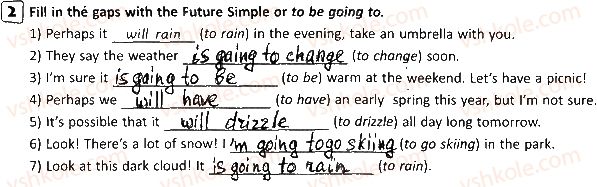 2 Fill in thé gaps with the Future Simple or to be going to.
1) Perhaps it will rain (to rain) in the evening, take an umbrella with you.
2) They say the weather is going to change (to change) soon.
3) I'm sure it is going to be (to be) warm at the weekend. Let's have a picnic!
4) Perhaps we will have (to have) an early spring this year, but I'm not sure.
5) It's possible that it will drizzle (to drizzle) all day long tomorrow.
6) Look! There's a lot of snow! I'm going to go skiing (to go skiing) in the park.
7) Look at this dark cloud! It is going to rain (to rain).